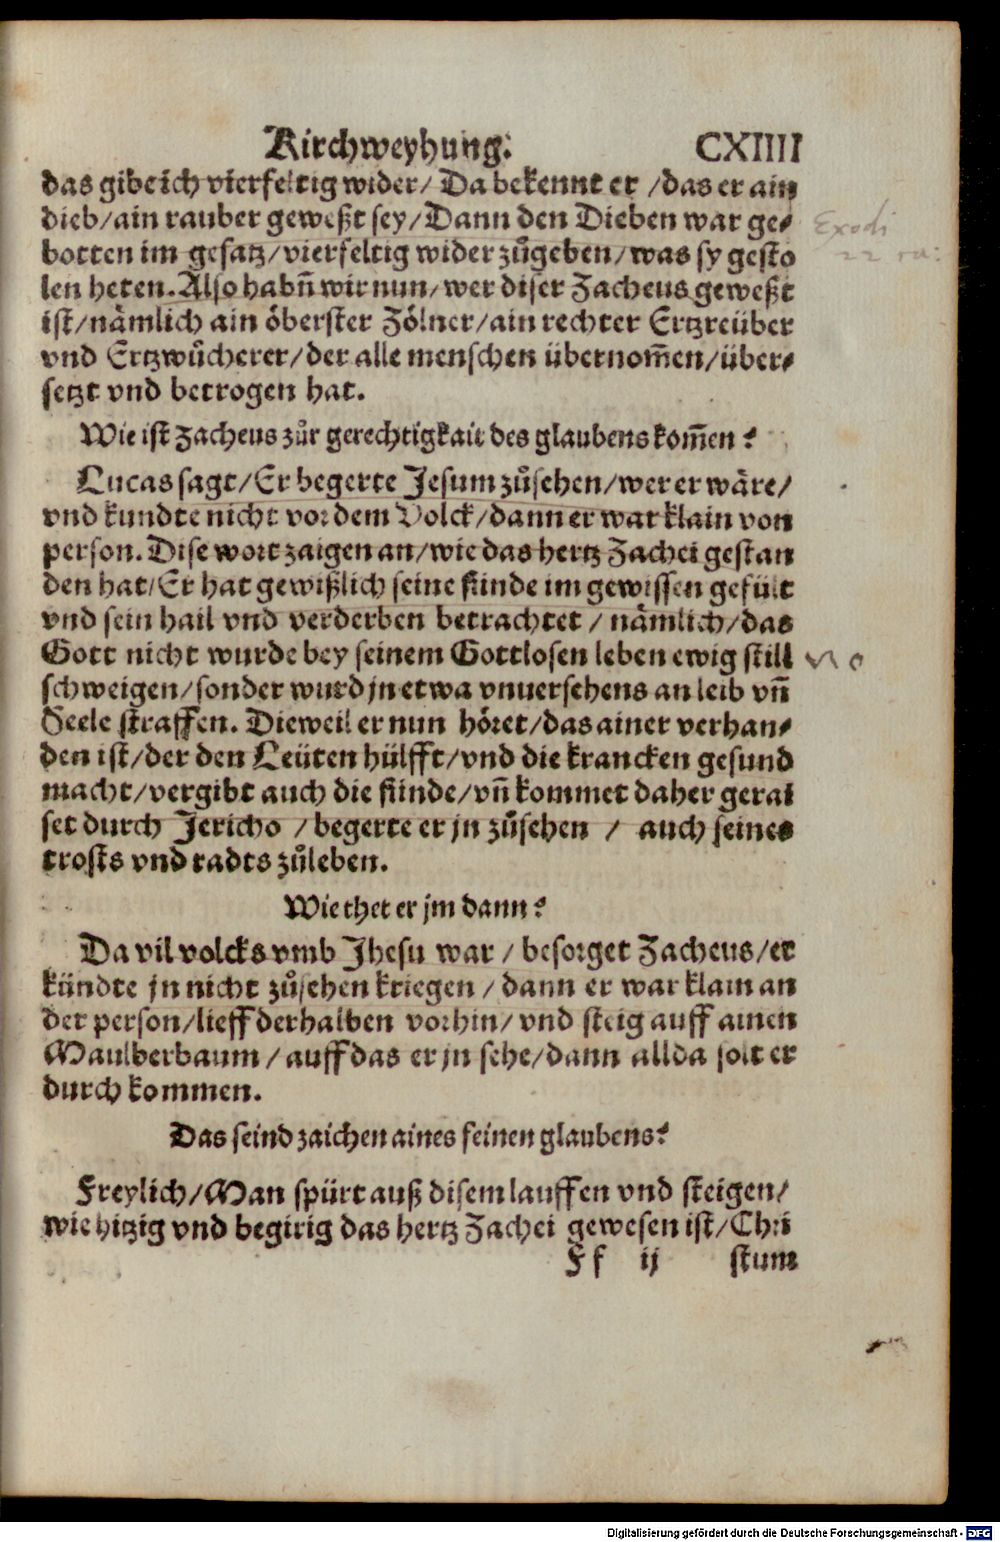 Kirchweyhung. CXIIII
das gibe ich vierfeltig wider/ Da bekennt er /das er ain
dieb/ain rauber geweßt sey/Dann den Dieben war ge⸗
botten im gesatz/vierfeltig wider zůgeben/was sy gesto
len heten. Also habñ wir nun/wer diser Zacheus geweßt
ist/nämlich ain öberster Zölner/ain rechter Ertzreüber
vnd Ertzwůcherer/der alle menschen übernom̃en/über⸗
setzt vnd betrogen hat.
Wie ist Zacheus zůr gerechtigkait des glaubens kom̃en?
Lucas sagt/Er begerte Jesum zůsehen/wer er wäre/
vnd kundte nicht vor dem Volck/dann er war klain von
person. Dise wort zaigen an/wie das hertz Zachei gestan
den hat/Er hat gewißlich seine sünde im gewissen gefült
vnd sein hail vnd verderben betrachtet / nämlich/das
Gott nicht wurde bey seinem Gottlosen leben ewig still
schweigen/sonder wurd jn etwa vnuersehens an leib vñ
Seele straffen. Dieweil er nun höret/das ainer verhan⸗
den ist/der den Leüten hülfft/vnd die krancken gesund
macht/vergibt auch die sünde/vñ kommet daher gerai
set durch Jericho /begerte er jn zůsehen / auch seines
trosts vnd radts zůleben.
Wie thet er jm dann?
Da vil volcks vmb Jhesu war / besorget Zacheus/er
kündte jn nicht zůsehen kriegen / dann er war klain an
der person/lieff derhalben vorhin/ vnd steig auff ainen
Maulberbaum /auff das er jn sehe/dann allda solt er
durch kommen.
Das seind zaichen aines feinen glaubens?
Freylich/Man spürt auß disem lauffen vnd steigen/
wie hitzig vnd begirig das hertz Zachei gewesen ist/Chri
Ff ij stum
Exodi
22
Digitalisierung gefördert durch die Deutsche Forschungsgemeinschaft - DFG